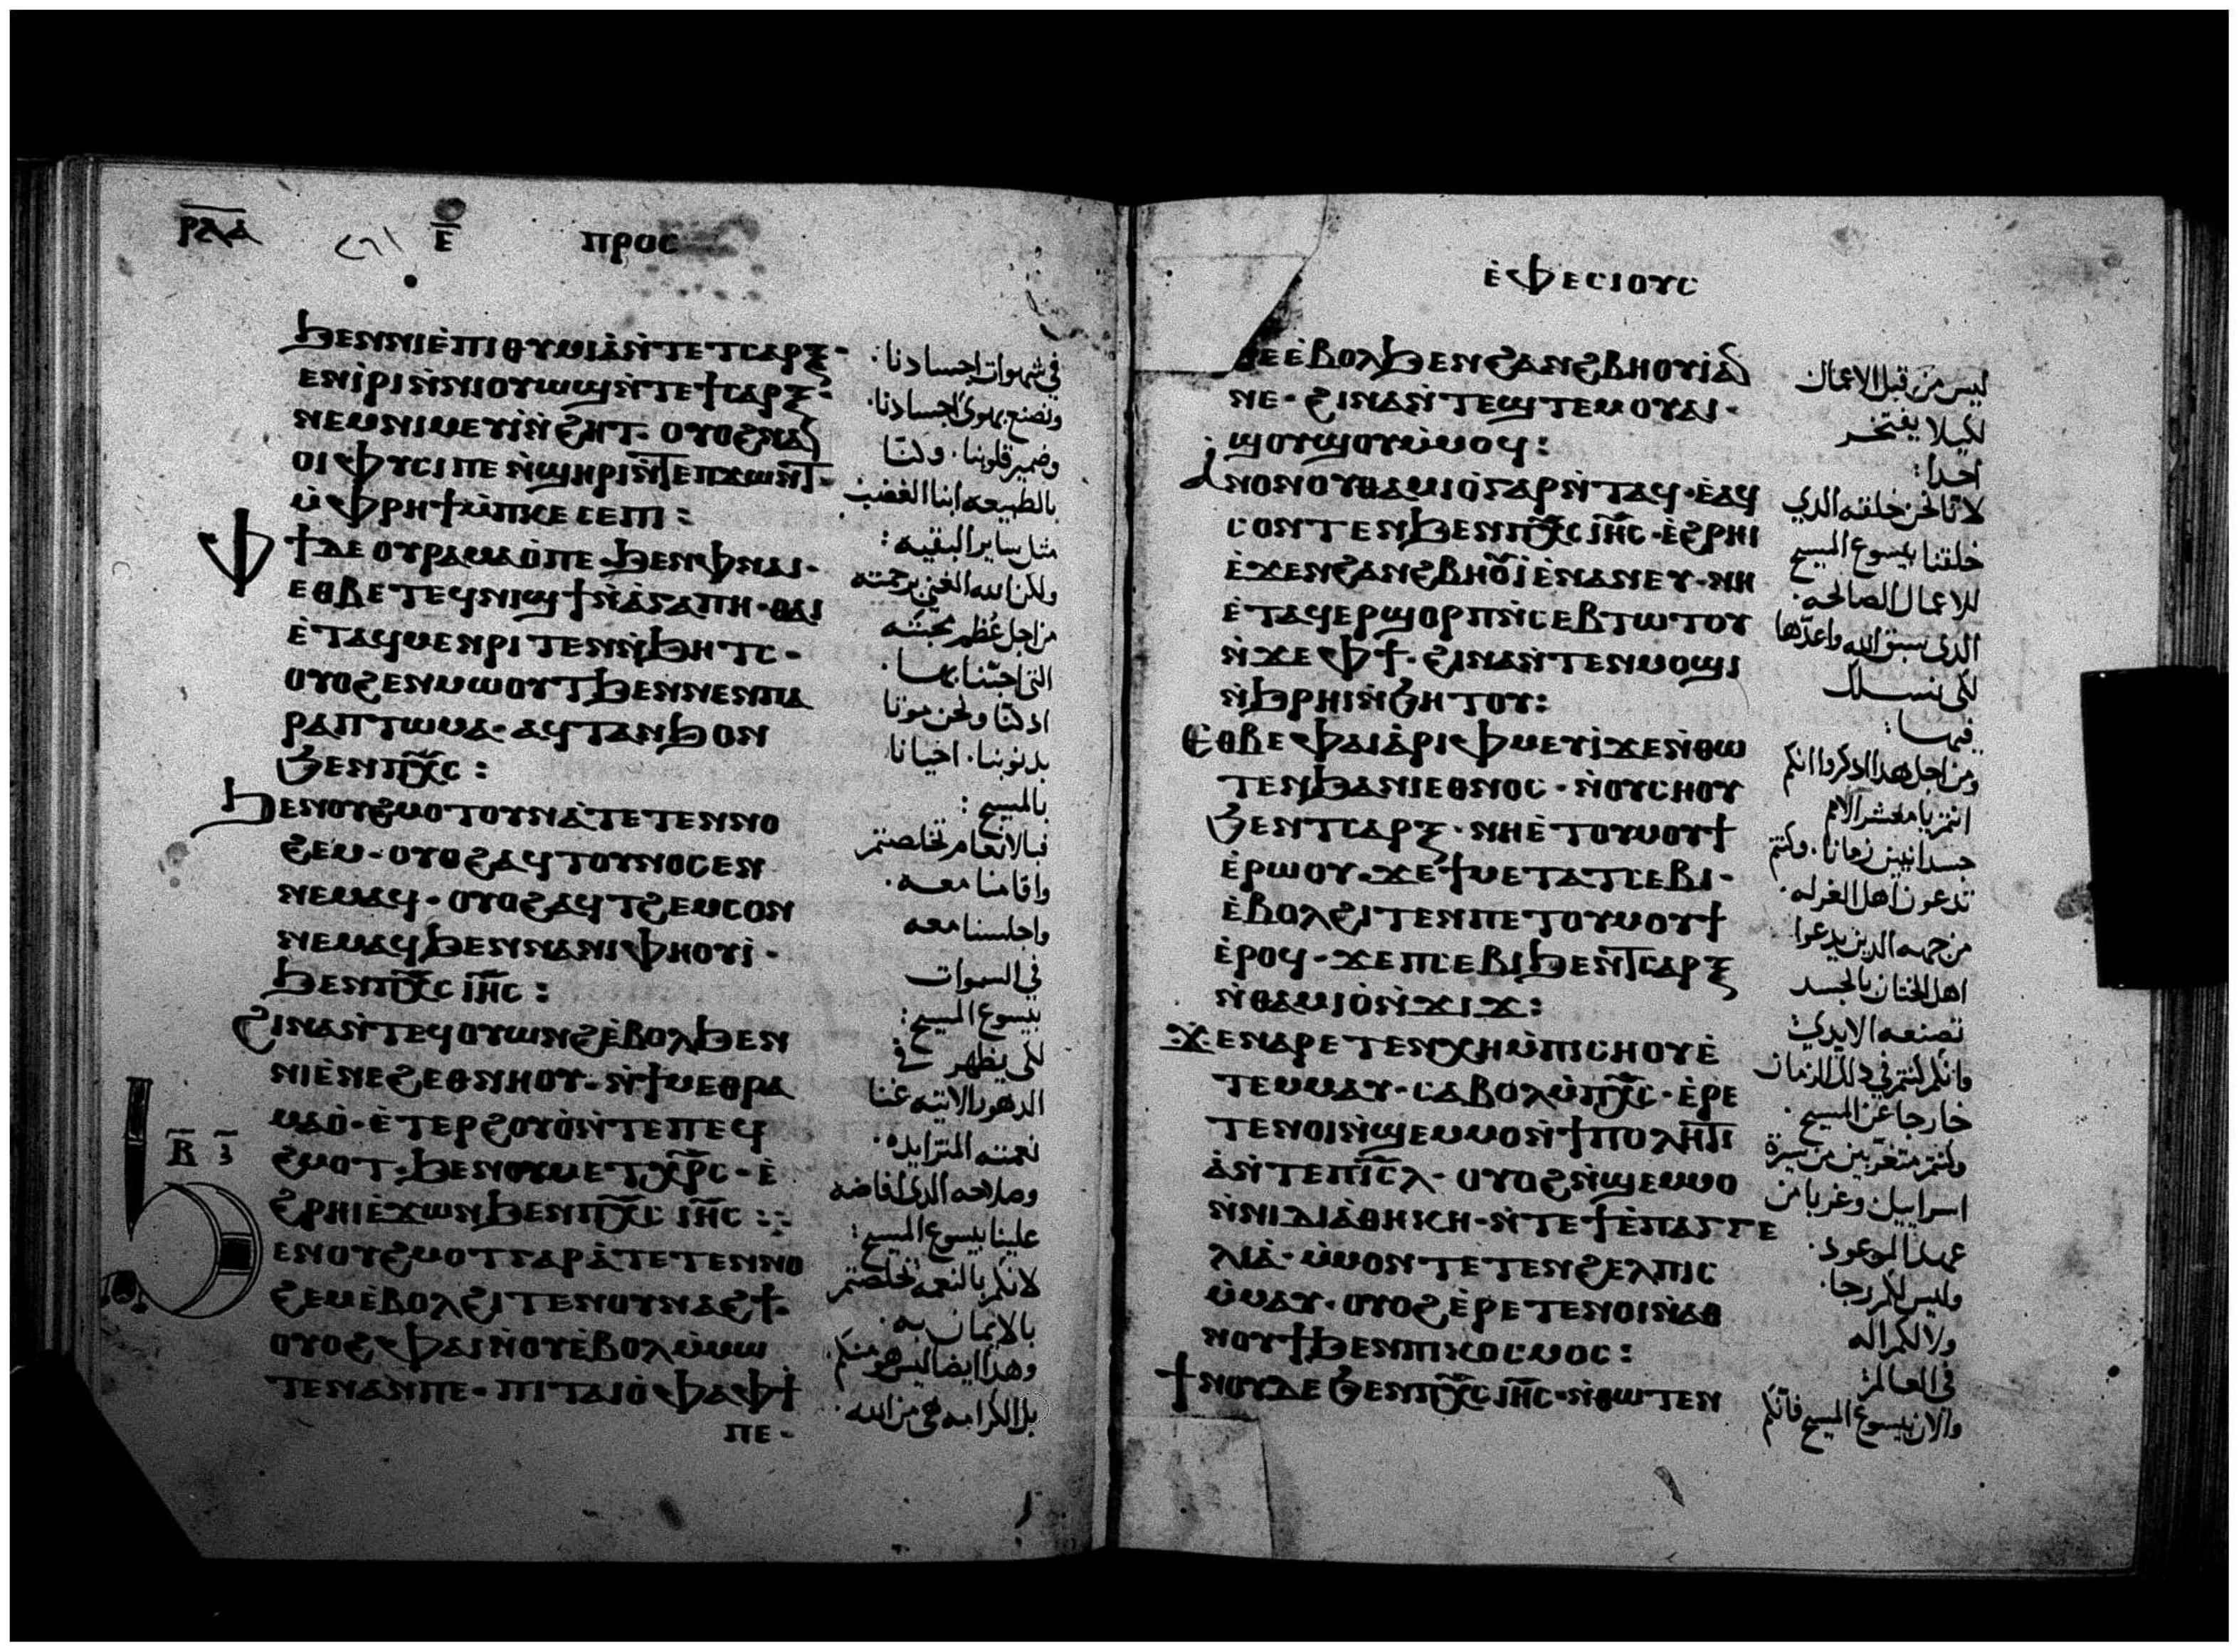 ⲣⲗⲁ
ⲉ̅
ⲡⲣⲟⲥ
ϧⲉⲛⲛⲓⲉ̀ⲡⲓⲑⲩⲙⲓⲁ̀ⲛ̀ⲧⲉⲧⲥⲁⲣⲝ·
ⲉⲛⲓ̀ⲣⲓⲛ̀ⲛⲓⲟⲩⲱϣⲛ̀ⲧⲉϯⲥⲁⲣⲝ·
ⲛⲉⲙⲛⲓⲙⲉⲩⲓ̀ⲛ̀ϩⲏⲧ· ⲟⲩⲟϩⲛⲁ
ⲟⲓ ⲫⲩⲥⲓ ⲡⲉ ⲛ̀ϣⲏⲣⲓⲛ̀ⲧⲉⲡϫⲱⲛⲧ·
ⲙ̀ⲫⲣⲏϯⲙ̀ⲡⲕⲉⲥⲉⲡⲓ:
ⲫϯⲇⲉ ⲟⲩⲣⲁⲙⲁⲟ̀ⲡⲉ·ϧⲉⲛⲫⲛⲁⲓ·
ⲉⲑⲃⲉⲧⲉϥⲛⲓϣϯⲛ̀ⲁ̀ⲅⲁⲡⲏ·ⲑⲁⲓ
ⲉ̀ⲧⲁϥⲙⲉⲛⲣⲓⲧⲉⲛⲛ̀ϧⲏⲧⲥ·
ⲟⲩⲟϩⲉⲛⲙⲱⲟⲩⲧϧⲉⲛⲛⲉⲛⲡⲁ
ⲣⲁⲡⲧⲱⲙⲁ·ⲁϥⲧⲁⲛϧⲟⲛ
ϧⲉⲛⲡⲭ̅ⲥ̅:
ϧⲉⲛⲟⲩϩⲙⲟⲧⲟⲩⲛⲁ̀ⲧⲉⲧⲉⲛⲛⲟ
ϩⲉⲙ·ⲟⲩⲟϩⲁϥⲧⲟⲩⲛⲟⲥⲉⲛ
ⲛⲉⲙⲁϥ·ⲟⲩⲟϩⲁϥⲧϩⲉⲙⲥⲟⲛ
ⲛⲉⲙⲁϥϧⲉⲛⲛⲁⲛⲓⲫⲏⲟⲩⲓ̀·
ϧⲉⲛⲡⲭ̅ⲥ̅ ⲓⲏ̅ⲥ̅:
ϩⲓⲛⲁⲛ̀ⲧⲉϥⲟⲩⲱⲛϩⲉ̀ⲃⲟⲗϧⲉⲛ
ⲛⲓⲉ̀ⲛⲉϩⲉⲑⲛⲏⲟⲩ·ⲛ̀ϯⲙⲉⲑⲣⲁ
ⲙⲁⲟ̀·ⲉ̀ⲧⲉⲣϩⲟⲩⲟ̀ⲛ̀ⲧⲉⲡⲉϥ
ⲃ̅ ⲍ̅
ϩⲙⲟⲧ·ϧⲉⲛⲟⲩⲙⲉⲧⲭⲣ̅ⲥ·ⲉ̀
ϩⲣⲏⲓⲉ̀ϫⲱⲛϧⲉⲛⲡⲭ̅ⲥ̅ ⲓⲏ̅ⲥ̅:
ϧⲉⲛⲟⲩϩⲙⲟⲧⲅⲁⲣⲁ̀ⲧⲉⲧⲉⲛⲛⲟ
ϩⲉⲙⲉ̀ⲃⲟⲗϩⲓⲧⲉⲛⲟⲩⲛⲁϩϯ·
ⲟⲩⲟϩⲫⲁⲓⲛ̀ⲟⲩⲉ̀ⲃⲟⲗⲙ̀ⲙⲱ
ⲧⲉⲛⲁⲛⲡⲉ·ⲡⲓⲧⲁⲓⲟ̀ⲫⲁⲫϯ
ⲡⲉ·
في شهوات اجسادنا·
ونصنع بهوى اجسادنا·
وضمير قلوبنا· وكنا
بالطبيعه ابنا الغضب
مثل ساير البقيه:
ولكن الله الغني برحمته
من اجل عظم محبته
التي احبنا بها·
اد كنا ونحن موتا
بدنوبنا· احيانا
بالمسيح:
فبالانعام تخلصتم
واقامنا معه·
واجلسنا معه
في السموات
بيسوع المسيح:
لكي يظهر في
الدهور الاتيه غنا
نعمته المتزايده·
وصلاحه الدي افاضه
علينا بيسوع المسيح:
لانكم بالنعمه تخلصتم
بالايمان به·
وهدا ايضا ليس هو منكم·
بل الكرامه هي من الله·
ⲉ̀ⲫⲉⲥⲓⲟⲩⲥ
ⲛⲉⲉ̀ⲃⲟⲗϧⲉⲛϩⲁⲛϩⲃⲏⲟⲩⲓ̀ⲁ
ⲛⲉ·ϩⲓⲛⲁⲛ̀ⲧⲉϣⲧⲉⲙⲟⲩⲁⲓ·
ϣⲟⲩϣⲟⲩⲙ̀ⲙⲟϥ:
ⲁⲛⲟⲛⲟⲩⲑⲁⲙⲓⲟ̀ⲅⲁⲣⲛ̀ⲧⲁϥ·ⲉ̀ⲁϥ
ⲥⲟⲛⲧⲉⲛϧⲉⲛⲡⲭ̅ⲥ̅ ⲓⲏ̅ⲥ̅·ⲉ̀ϩⲣⲏⲓ
ⲉ̀ϫⲉⲛϩⲁⲛϩⲃⲏⲟ̅ⲓ̀ⲉ̀ⲛⲁⲛⲉⲩ·ⲛⲏ
ⲉ̀ⲧⲁϥⲉⲣϣⲟⲣⲡⲛ̀ⲥⲉⲃⲧⲱⲧⲟⲩ
ⲛ̀ϫⲉⲫϯ·ϩⲓⲛⲁⲛ̀ⲧⲉⲛⲙⲟϣⲓ
ⲛ̀ϧⲣⲏⲓⲛ̀ϧⲏⲧⲟⲩ:
ⲉⲑⲃⲉⲫⲁⲓⲁ̀ⲣⲓⲫⲙⲉⲩⲓ̀ϫⲉⲛ̀ⲑⲱ
ⲧⲉⲛϧⲁⲛⲓⲉⲑⲛⲟⲥ·ⲛ̀ⲟⲩⲥⲏⲟⲩ
ϧⲉⲛⲧⲥⲁⲣⲝ·ⲛⲏⲉ̀ⲧⲟⲩⲙⲟⲩϯ
ⲉ̀ⲣⲱⲟⲩ·ϫⲉϯⲙⲉⲧⲁⲧⲥⲉⲃⲓ·
ⲉ̀ⲃⲟⲗϩⲓⲧⲉⲛⲡⲉⲧⲟⲩⲙⲟⲩϯ
ⲉ̀ⲣⲟϥ·ϫⲉⲡⲥⲉⲃⲓϧⲉⲛⲧⲥⲁⲣⲝ
ⲛ̀ⲑⲁⲙⲓⲟ̀ⲛ̀ϫⲓϫ:
ϫⲉⲛⲁⲣⲉⲧⲉⲛⲭⲏⲙ̀ⲡⲓⲥⲏⲟⲩⲉ̀
ⲧⲉⲙⲙⲁⲩ·ⲥⲁⲃⲟⲗⲙ̀ⲡⲭ̅ⲥ̅·ⲉ̀ⲣⲉ
ⲧⲉⲛⲟⲓⲛ̀ϣⲉⲙⲙⲟⲛ̀ϯⲡⲟⲗⲏⲧⲓ
ⲁ̀ⲛ̀ⲧⲉⲡⲓⲥ̅ⲗ·ⲟⲩⲟϩⲛ̀ϣⲉⲙⲙⲟ
ⲛ̀ⲛⲓⲇⲓⲁ̀ⲑⲏⲕⲏ·ⲛ̀ⲧⲉϯⲉ̀ⲡⲁⲅⲅⲉ
ⲗⲓⲁ̀·ⲙ̀ⲙⲟⲛⲧⲉⲧⲉⲛϩⲉⲗⲡⲓⲥ
ⲙ̀ⲙⲁⲩ·ⲟⲩⲟϩⲉ̀ⲣⲉⲧⲉⲛⲟⲓⲛ̀ⲁⲑ
ⲛⲟⲩϯϧⲉⲛⲡⲓⲕⲟⲥⲙⲟⲥ:
ϯⲛⲟⲩⲇⲉϧⲉⲛⲡⲭ̅ⲥ̅ ⲓⲏ̅ⲥ̅·ⲛ̀ⲑⲱⲧⲉⲛ
ليس من قبل الاعمال
لكيلا يفتخر
احد:
لانا نحن خلقته الدي
خلقنا بيسوع المسيح
للاعمال الصالحه·
الدي سبق الله واعدها
لكي نسلك
فيها:
ومن اجل هدا ادكروا انكم
انتم يا معشر الامم
جسدانيين زمانا· وكنتم
تدعون اهل الغرله·
من جهه الدين يدعوا
اهل الختان بالجسد
تصنعه الايدي
وانكم كنتم في دلك الزمان
خارجا عن المسيح·
وكنتم متغربين من سيرة
اسراييل وغربا من
عهد الموعود·
وليس لكم رجا·
ولا لكم اله
في العالم:
والان بيسوع المسيح فانكم